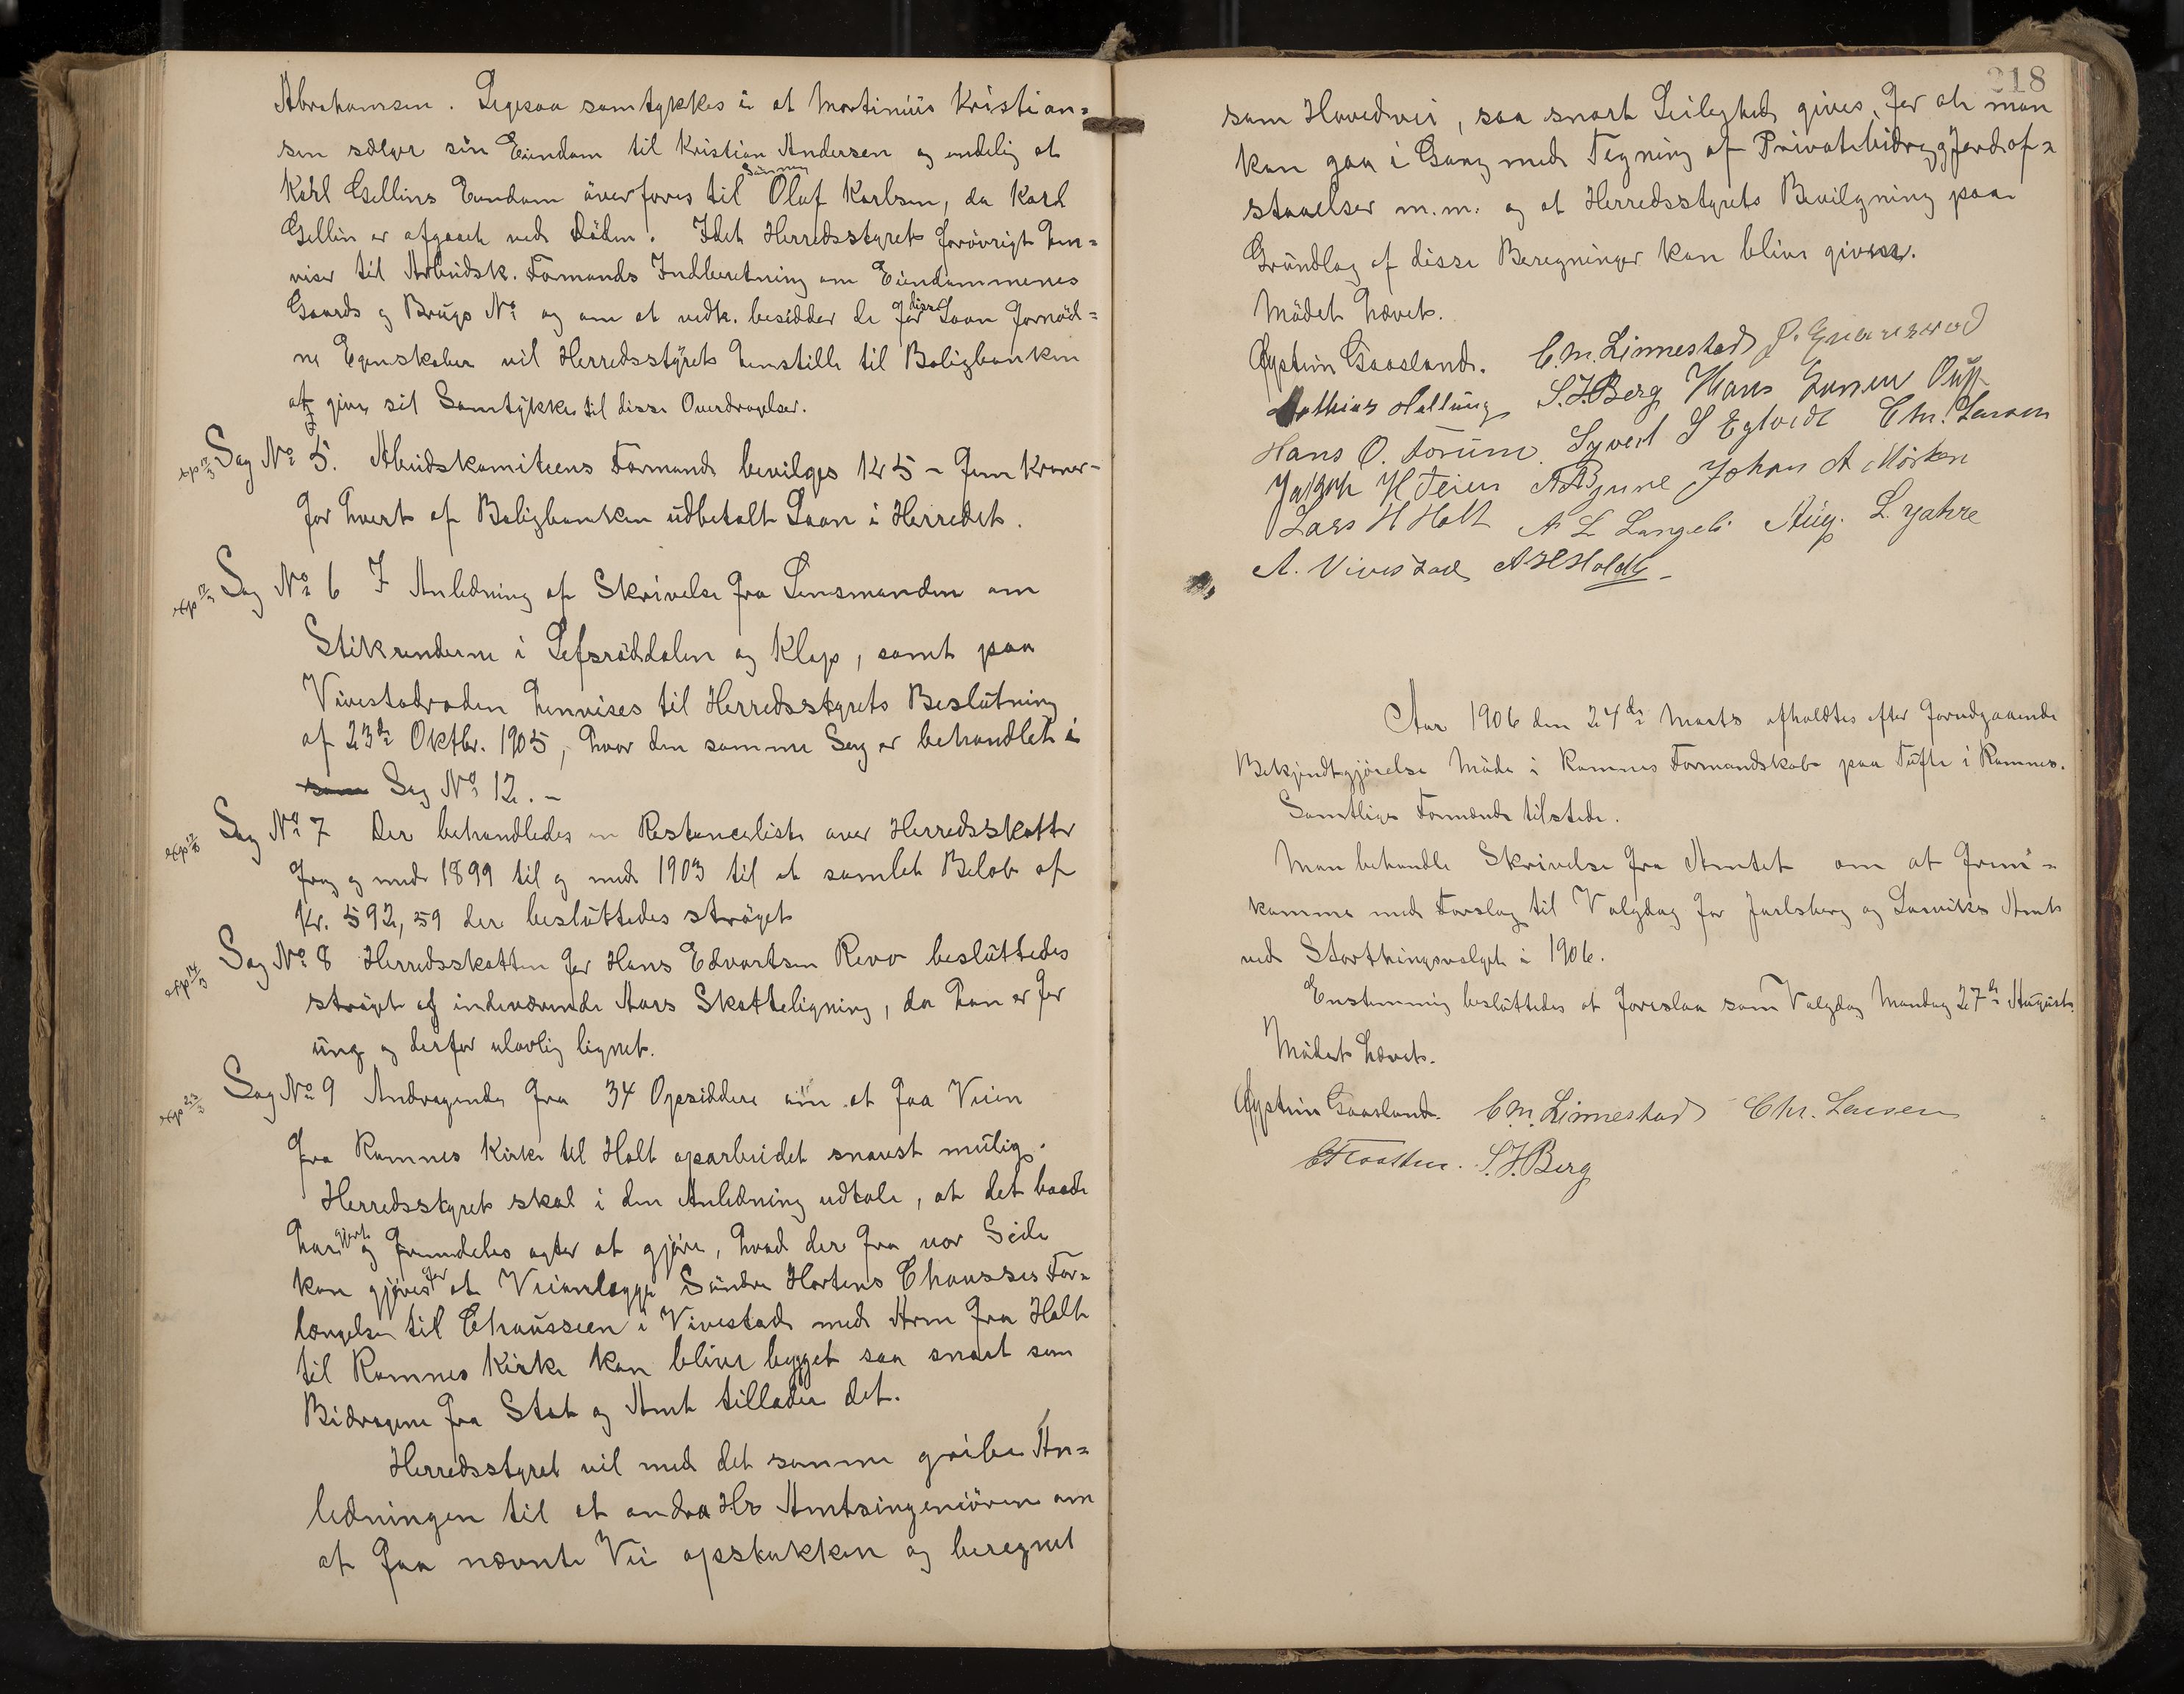 Abrahamsen. Ligesaa samtykkes i at Martinius Kristian=
sen sælger sin Eiendom til Kristian Andersen og endelig at
Karl Gellins Eiendom overføres til Sønnen Oluf Karlsen, da Karl
Gellin er afgaaet ved Døden. Idet Herredsstyret forøvrigt hen=
viser til Arbeidsk. Formands Indberetning om Eiendommenes
Gaards og Brugs No og om at vedk. besidder de for disse Laan fornød=
ne Egenskaber vil Herredsstyret henstille til Boligbanken
at give sit Samtykke til disse Overdragelser.
exp 12/3 Sag No 5. Arbeidskomiteens Formand bevilges Kr 5 - fem Kroner -
for hvert af Boligbanken udbetalt Laan i Herredet.
exp 12/3 Sag No 6 I Anledning af Skrivelse fra Lensmanden om
Stikrenderne i Lefsrøddalen og Klop, samt paa
Vivestadroden henvises til Herredsstyrets Beslutning
af 23de Oktbr. 1905, hvor den samme Sag er behandlet i
som Sag No 12. -
exp 12/3 Sag No 7 Der behandledes en Restanceliste over Herredsskatter
fra og med 1899 til og med 1903 til et samlet Beløb af
Kr. 592,59 der besluttedes strøget
exp 14/3 Sag No 8 Herredsskatten for Hans Edvartsen Revo besluttedes
strøget af indeværende Aars Skatteligning, da han er for
ung og derfor ulovlig lignet.
exp 23/3 Sag No 9 Andragende fra 34 Opsiddere om at faa Veien
fra Ramnes Kirke til Holt oparbeidet snarest mulig.
Herredsstyret skal i den Anledning udtale, at det baade
har gjort og fremdeles agter at gjøre, hvad der fra vor Side
kan gjøres for at Veianlægget Søndre Hortens Chaussees For=
længelse til Chausseen i Vivestad med Arm fra Holt
til Ramnes Kirke kan blive bygget saa snart som
Bidragene fra Stat og Amt tillader det.
Herredsstyret vil med det samme gribe An=
ledningen til at andra Hr Amtsingeniøren om
at faa nævnte Vei opstukken og beregnet
218
som Hovedvei, saa snart Leilighed gives, for at man
kan gaa i Gang med Tegning af Privatbidrag, Jordaf=
staaelser m.m. og at Herredsstyrets Bevilgning paa
Grundlag af disse Beregninger kan blive given.
Mødet hævet.
Øystein Gaasland. C. M. Linnestad
Mathias Hallung S. J. Berg Hans Hansen
Hans O. Forum. Syvert S Egtvedt Chr. Larsen
Jakob H Teien A. Bjune Johan A Mørken
Lars H Holt A L Langeli Aug. L. Jahre
A. Vivestad A H Holdt
Aar 1906 den 24de Marts afholdtes efter forudgaaende
Bekjendtgjørelse Møde i Ramnes Formandskab paa Tufte i Ramnes.
Samtlige Formænd tilstede.
Man behandle Skrivelse fra Amtet om at frem=
komme med Forslag til Valgdag for Jarlsberg og Larviks Amt
ved Storthingsvalget i 1906.
Enstemmig besluttedes at foreslaa som Valgdag Mandag 27de August.
Mødet hævet.
Øystein Gaasland. C. M. Linnestad Chr. Larsen
S. J. Berg